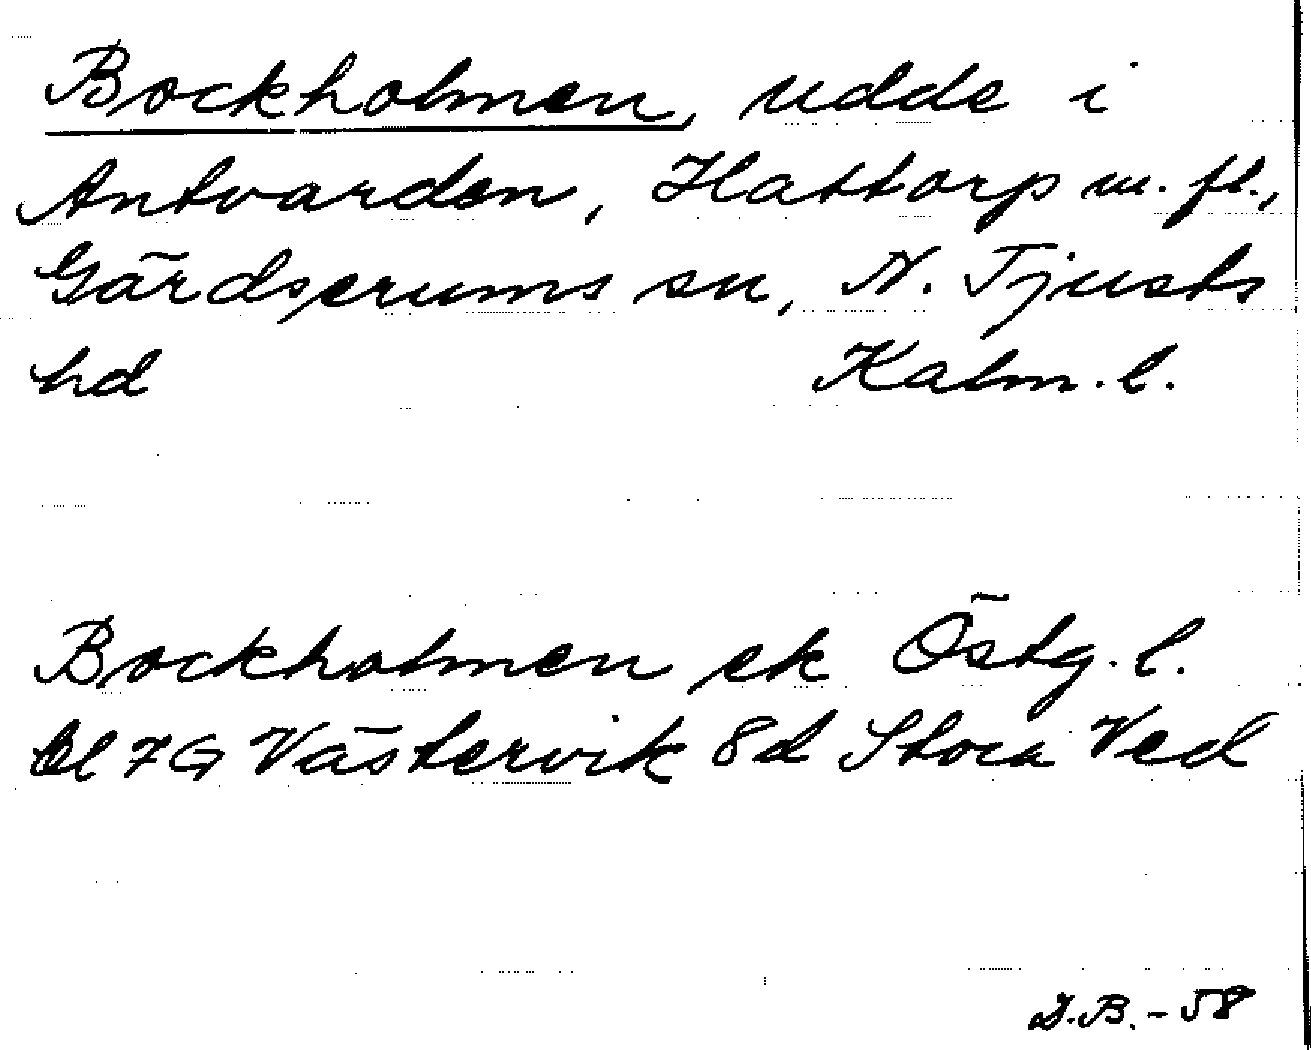 Bockholmen, udde i
Antvarden, Hattorp m. fl.,
Gärdserums sn, N. Tjusts
hd Kalm. l.
Bockholmen ek Östg. l.
Bl 7G Västervik 8d Stora Ved
D.B. - 58